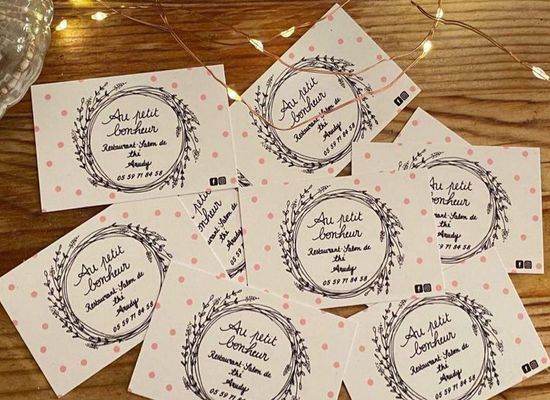 Au petit
bonheur
Restaurant-Salon de
thé
Arudy
05 59 71 84 58
Au petit
bonheur
Restaurant-Salon de
thé
Arudy
05 59 71 84 58
Au petit
bonheur
Restaurant-Salon de
thé
Arudy
05 59 71 84 58
Au petit
bonheur
Restaurant-Salon de
thé
Arudy
05 59 71 84 58
Au petit
bonheur
Restaurant-Salon de
thé
Arudy
05 59 71 84 58
Au petit
bonheur
Restaurant-Salon de
thé
Arudy
Au petit
bonheur
Restaurant-Salon de
thé
Arudy
05 59 71 84 58